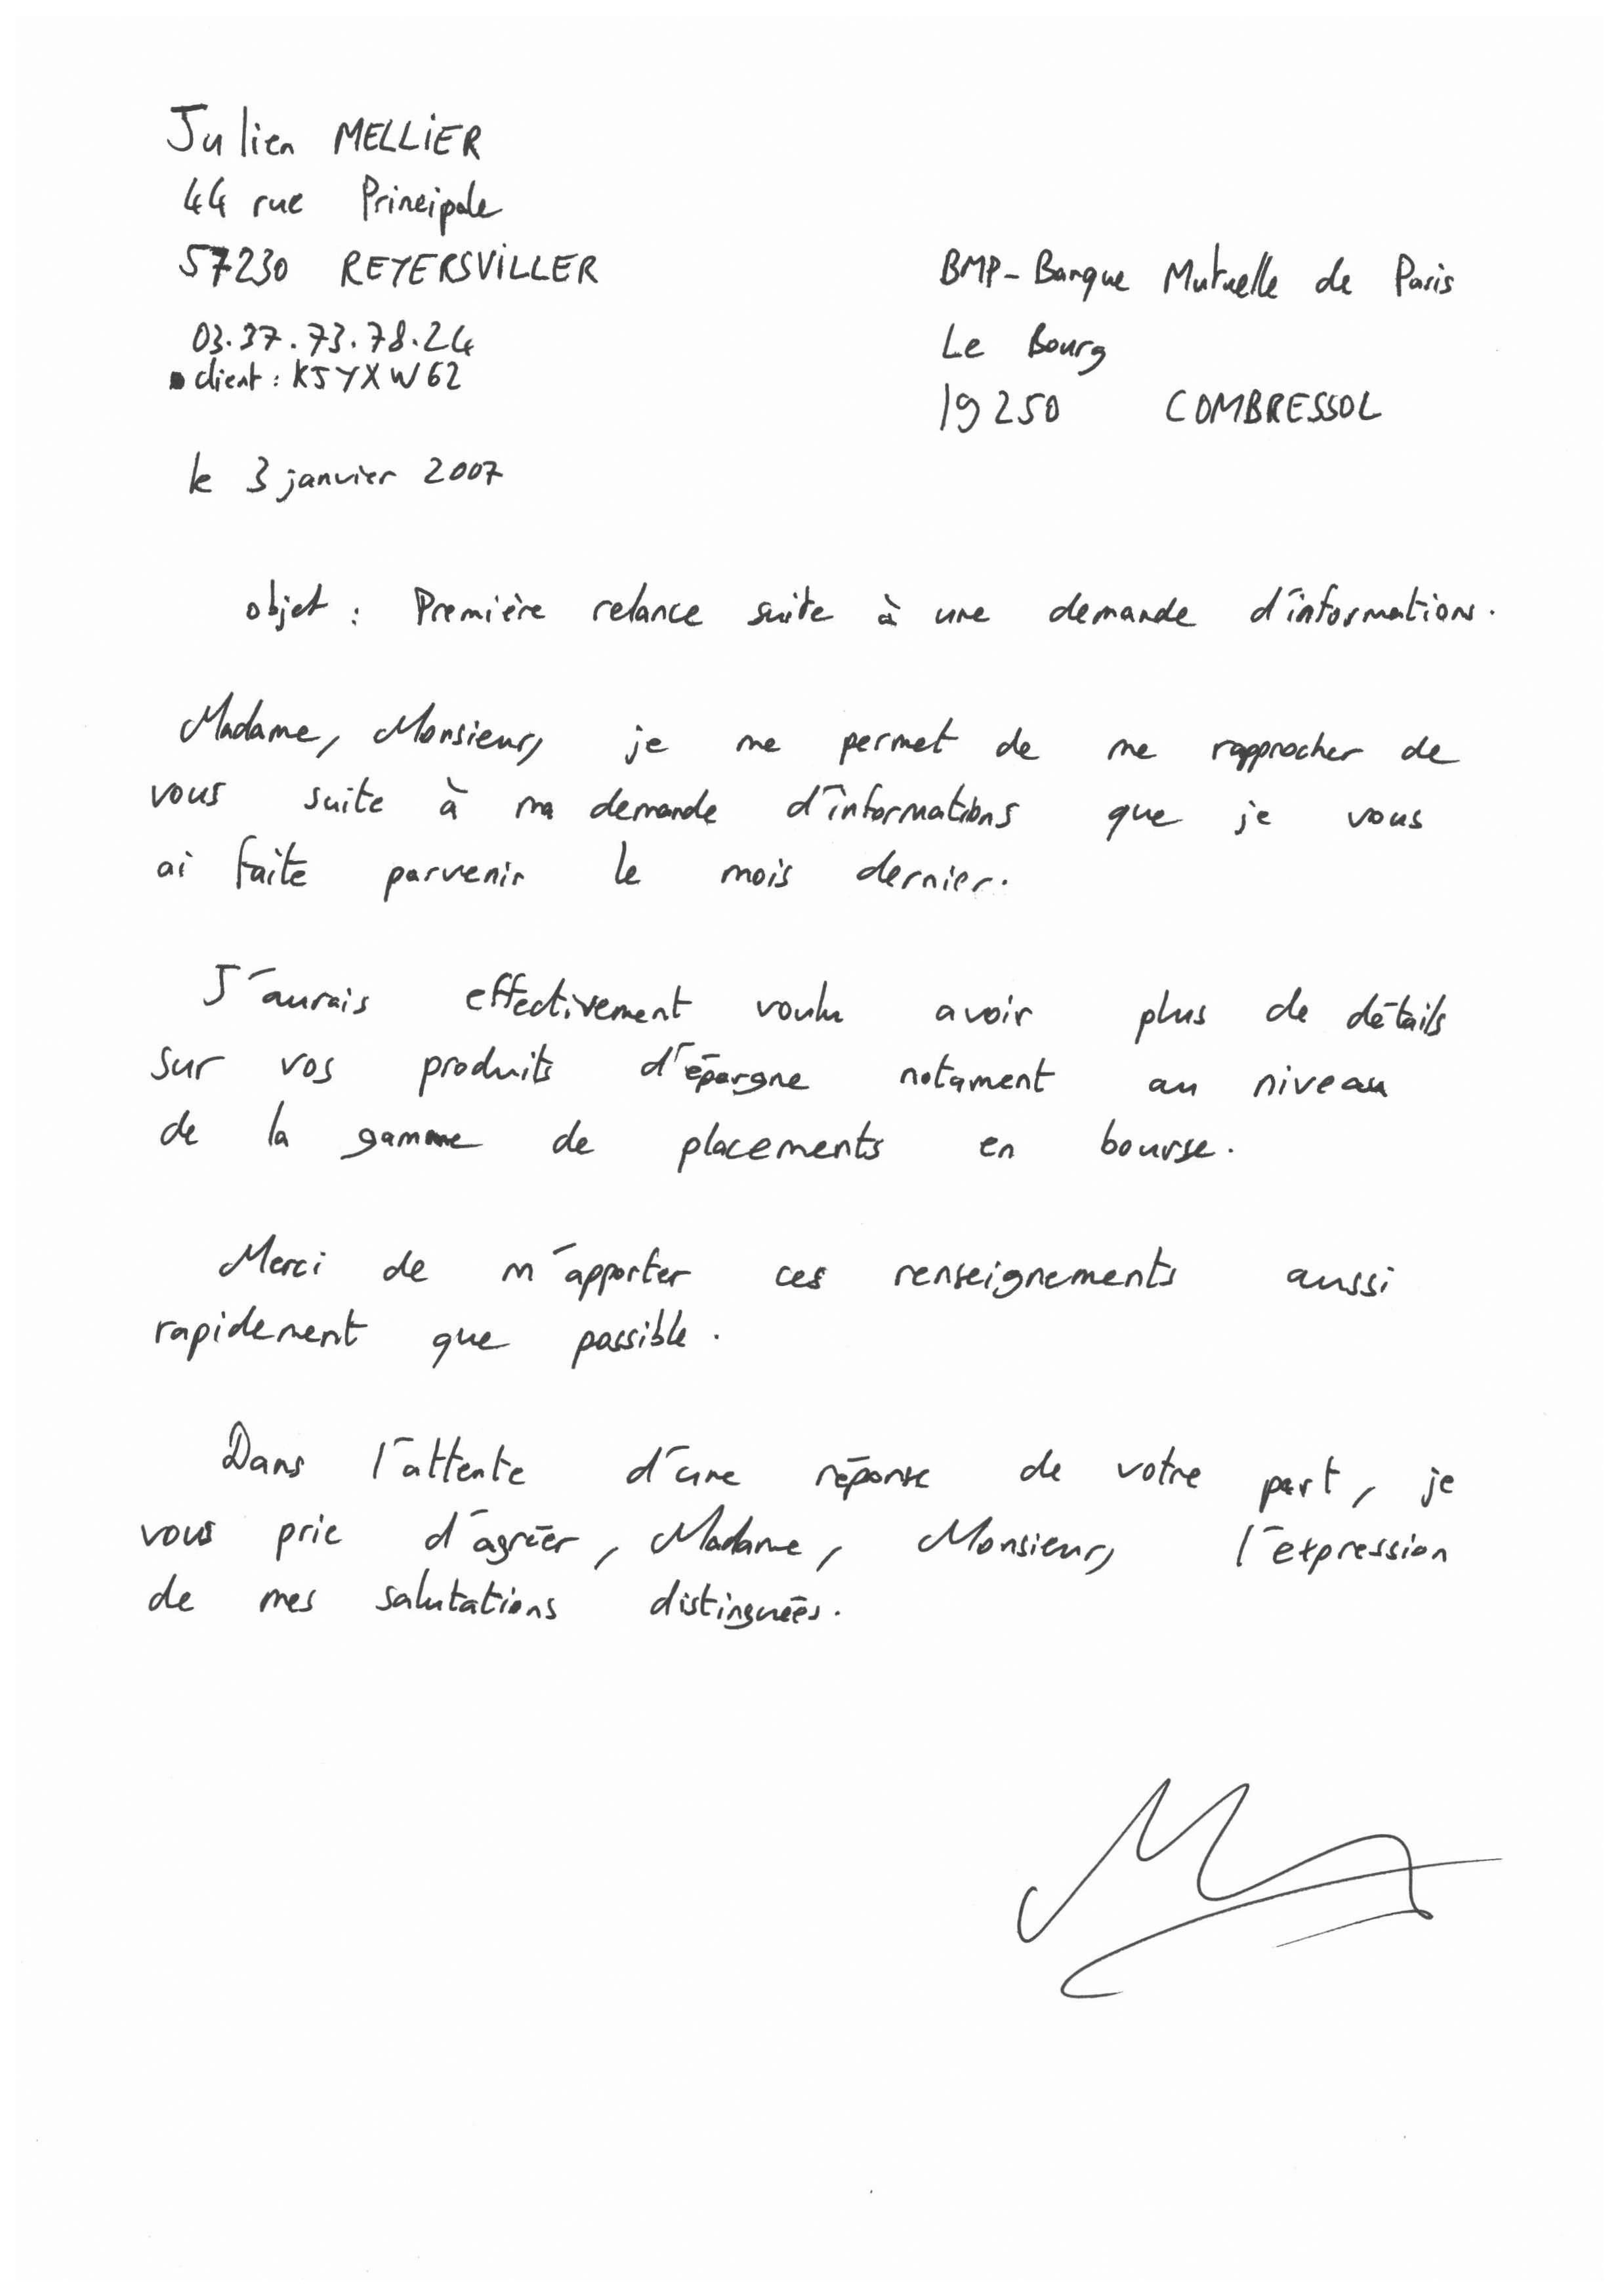 Julien MELLIER
44 rue Principale
57230 REYERSVILLER
03.37.73.78.24
client : KJYXW62
BMP-Banque Mutuelle de Paris
Le Bourg
19250 COMBRESSOL
le 3 janvier 2007
objet : Première relance suite à une demande d'informations.
Madame, Monsieur, je me permet de me rapprocher de
vous suite à ma demande d'informations que je vous
ai faite parvenir le mois dernier.
J'aurais effectivement voulu avoir plus de détails
sur vos produits d'épargne notament au niveau
de la gamme de placements en bourse.
Merci de m'apporter ces renseignements aussi
rapidement que possible.
Dans l'attente d'une réponse de votre part, je
vous prie d'agréer, Madame, Monsieur, l'expression
de mes salutations distinguées.